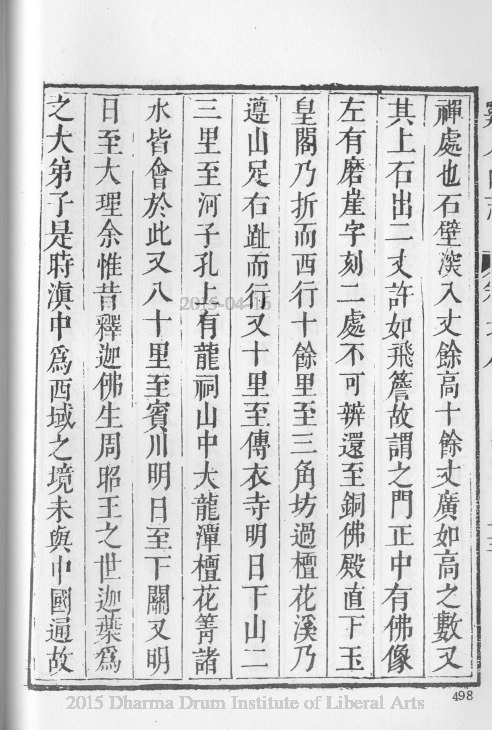 禪處也石壁深入丈餘高十餘丈廣如高之數又
其上石出二丈許如飛簷故謂之門正中有佛像
左右磨崖字刻二處不可辨還至銅佛殿直下玉
皇閣乃折而西行十餘里至三角坊過檀花溪乃
遵山足右趾而行又十里至傳衣寺明日下山二
三里至河子孔上有龍祠山中大龍潭檀花箐諸
水皆會於此又八十里至賓川明日至下關又明
日至大理余惟昔釋迦佛生周昭王之世迦葉爲
之大弟子是時滇中爲西域之境未與中國通故
2015-04-15
498
2015 Dharma Drum Institute of Liberal Arts